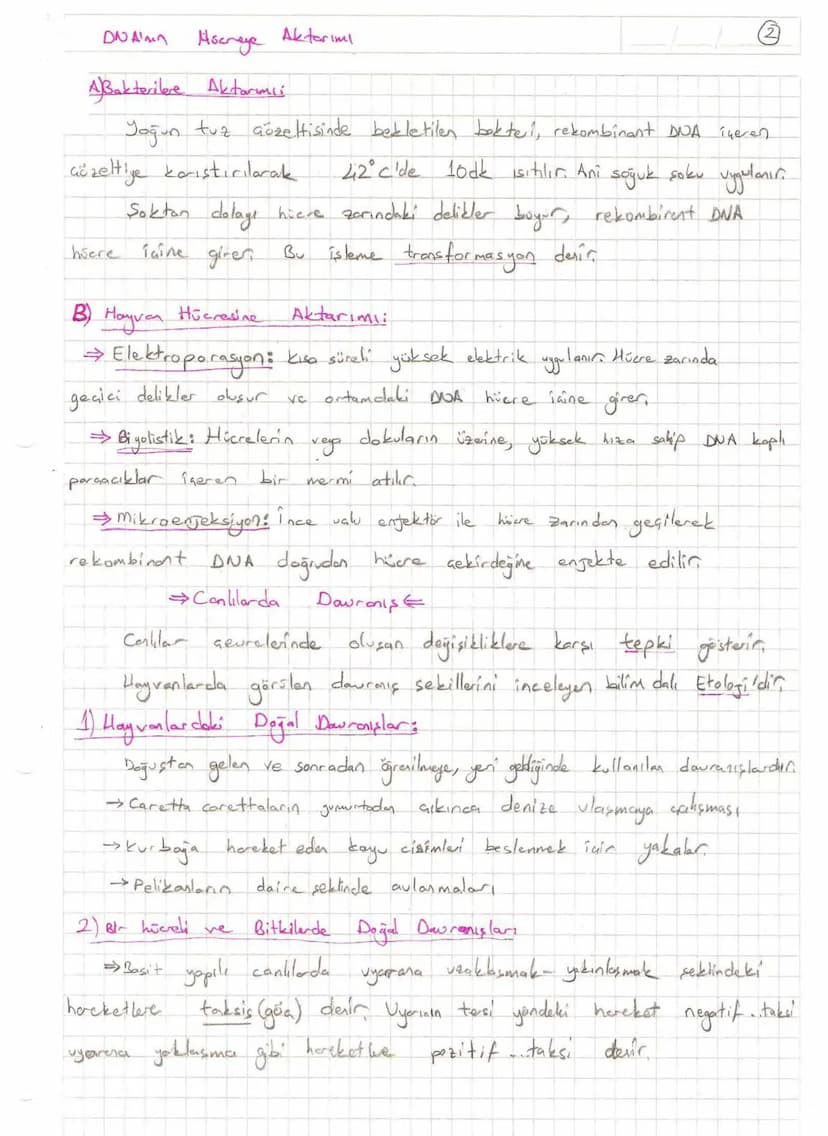 DNA'nın Hücreye Aktarımı
2
A) Bakterilere Aktarımı:
Yoğun tuz çözeltisinde bekletilen bakteri, rekombinant DNA içeren
çözeltiye karıştırılarak 42°C'de 10dk ısıtılır. Ani soğuk şoku uygulanır.
Şoktan dolayı hücre zarındaki delikler boyun, rekombinant DNA
hücre içine girer. Bu işleme transformasyon denir.
B) Hayvan Hücresine Aktarımı:
⇒ Elektroporasyon: Kısa süreli yüksek elektrik uygulanır. Hücre zarında
geçici delikler oluşur ve ortamdaki DNA hücre içine girer.
⇒ Biyolistik: Hücrelerin veya dokuların üzerine, yüksek hıza sahip DNA kaplı
parçacıklar içeren bir mermi atılır.
⇒ Mikroenjeksiyon: İnce uçlu enjektör ile hücre zarından geçilerek
rekombinant DNA doğrudan hücre çekirdeğine enjekte edilir.
⇒ Canlılarda Davranış ⇐
Canlılar çevrelerinde oluşan değişikliklere karşı tepki gösterir.
Hayvanlarda görülen davranış şekillerini inceleyen bilim dalı Etoloji'dir.
1) Hayvanlardaki Doğal Davranışlar:
Doğuştan gelen ve sonradan öğrenilmeye, yeri geldiğinde kullanılan davranışlardır.
→ Caretta carettaların yumurtadan çıkınca denize ulaşmaya çalışması
→ Kurbağa hareket eden koyu cisimleri beslenmek için yakalar.
→ Pelikanların daire şeklinde avlanmaları
2) Bir hücreli ve Bitkilerde Doğal Davranışları
⇒ Basit yapılı canlılarda uyarana uzaklaşmak-yakınlaşmak şeklindeki
hareketlere taksis (göç) denir. Uyarının tersi yöndeki hareket negatif..taksi
uyarana yaklaşma gibi hareketlere pozitif...taksi denir.